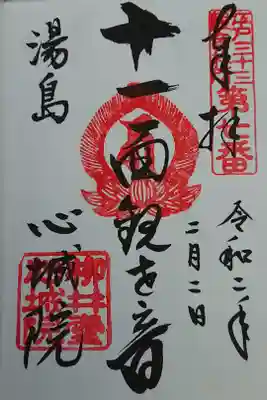 江戸三十三第七番
奉拝
令和二年
二月二日
十一面観世音
湯島
心城院
柳井堂心城院